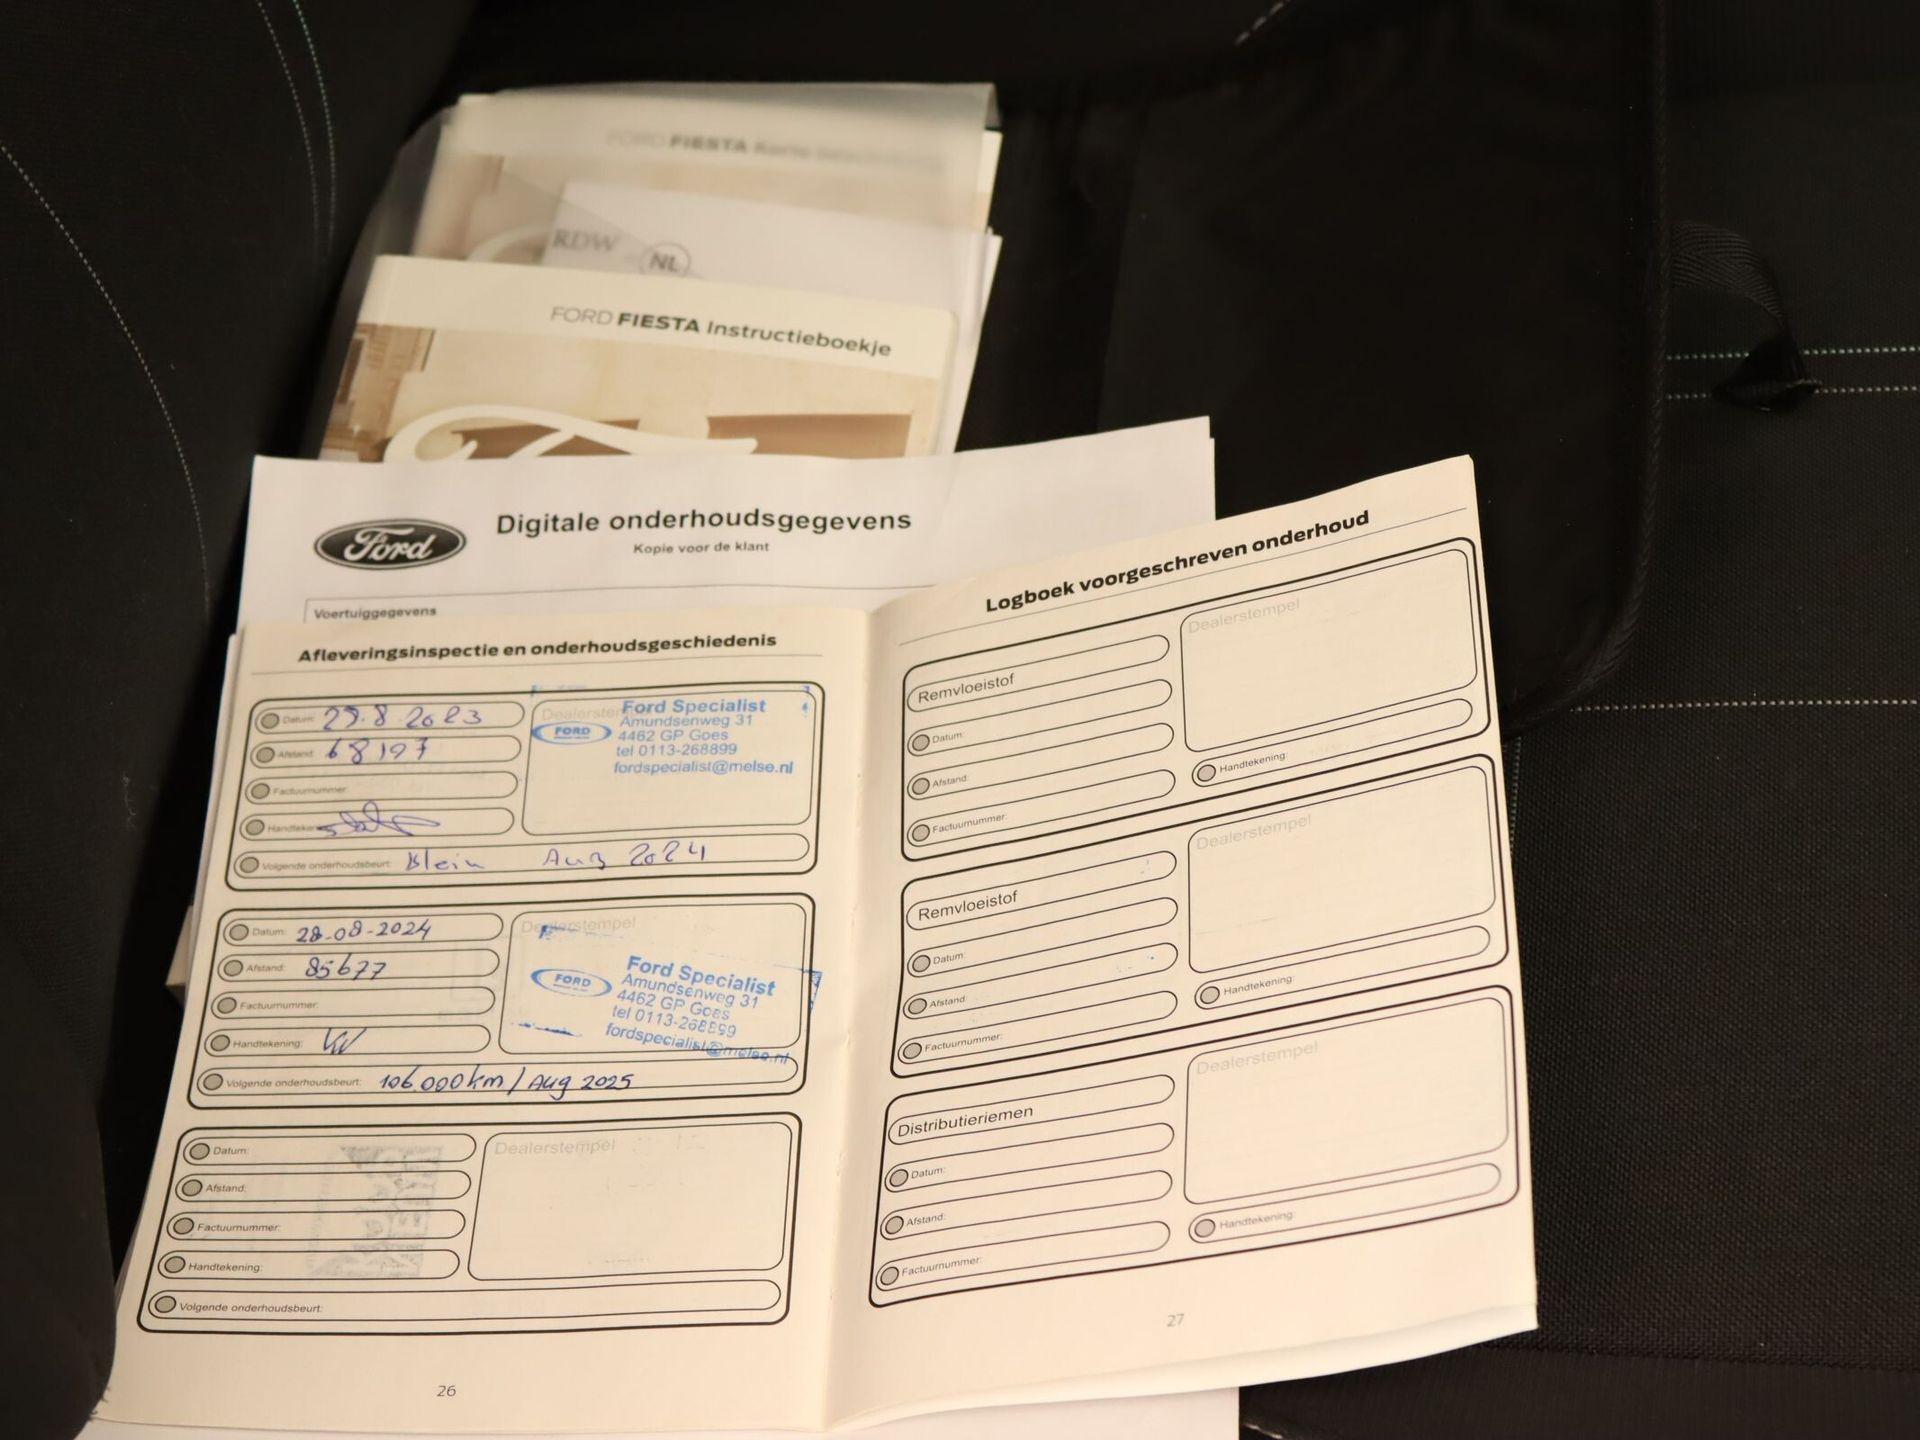 FORD FIESTA Korte
RDW
NL
FORD FIESTA Instructieboekje
Ford
Digitale onderhoudsgegevens
Kopie voor de klant
Voertuiggegevens
Afleveringsinspectie en onderhoudsgeschiedenis
Datum: 29.8.2023
Afstand: 68197
Factuurnummer:
Handtekening:
Volgende onderhoudsbeurt: Klein Aug 2024
Dealerstempel
FORD
Ford Specialist
Amundsenweg 31
4462 GP Goes
tel 0113-268899
fordspecialist@melse.nl
Datum: 28-08-2024
Afstand: 85677
Factuurnummer:
Handtekening:
Volgende onderhoudsbeurt: 106.000km/Aug 2025
Dealerstempel
FORD
Ford Specialist
Amundsenweg 31
4462 GP Goes
tel 0113-268899
fordspecialist@melse.nl
Datum:
Afstand:
Factuurnummer:
Handtekening:
Volgende onderhoudsbeurt:
Dealerstempel
26
Logboek voorgeschreven onderhoud
Remvloeistof
Datum:
Afstand:
Factuurnummer:
Dealerstempel
Handtekening:
Remvloeistof
Datum:
Afstand:
Factuurnummer:
Dealerstempel
Handtekening:
Distributieriemen
Datum:
Afstand:
Factuurnummer:
Dealerstempel
Handtekening:
27